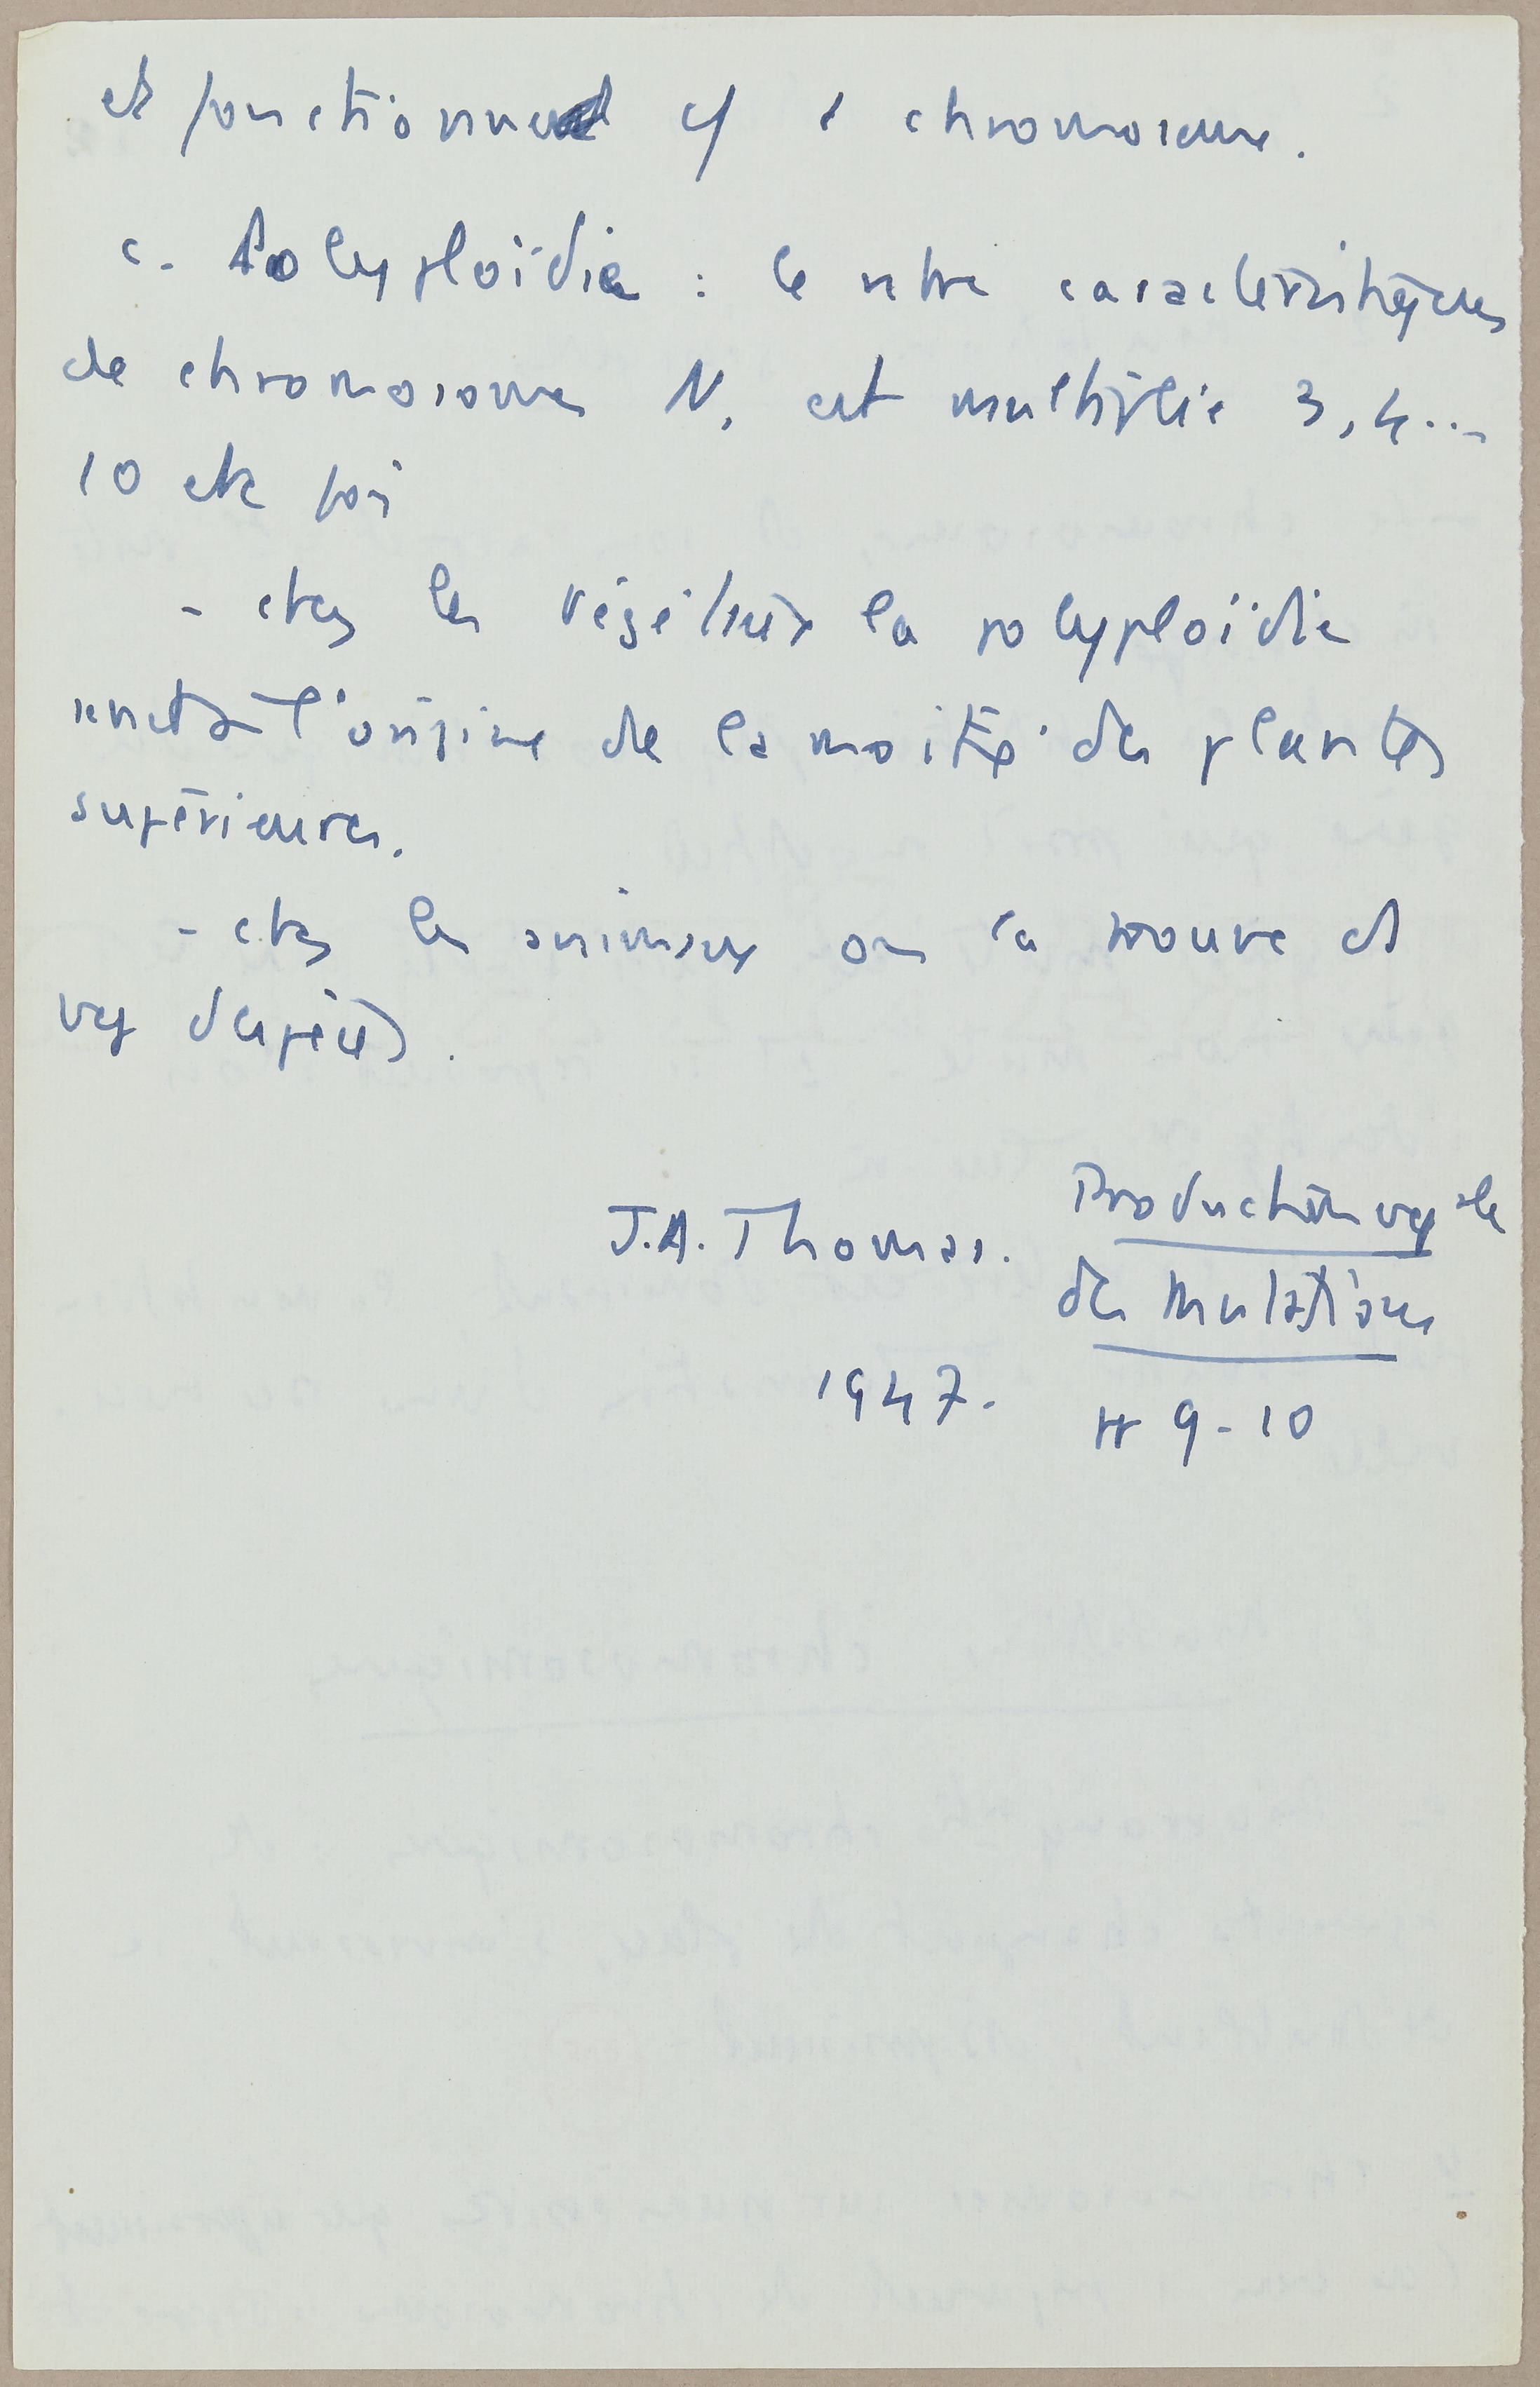 et fonctionnent c/ 1 chromosome.
c. Polyploïdie : le nbre caractéristiques
de chromosomes N, est multiplié 3, 4...
10 etc fois
- chez les végétaux la polyploïdie
l'origine de la moitié des plantes
supérieures.
- chez les animaux on la trouve et
d'espèces.
J.A. Thomas. Production exp ale
des Mutations
1947. 9-10